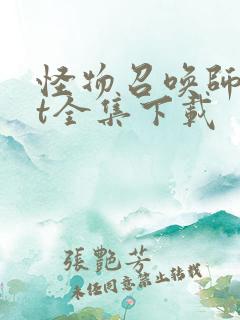 怪物召唤師
t全集下載
張艷芳
未任同意禁止转载